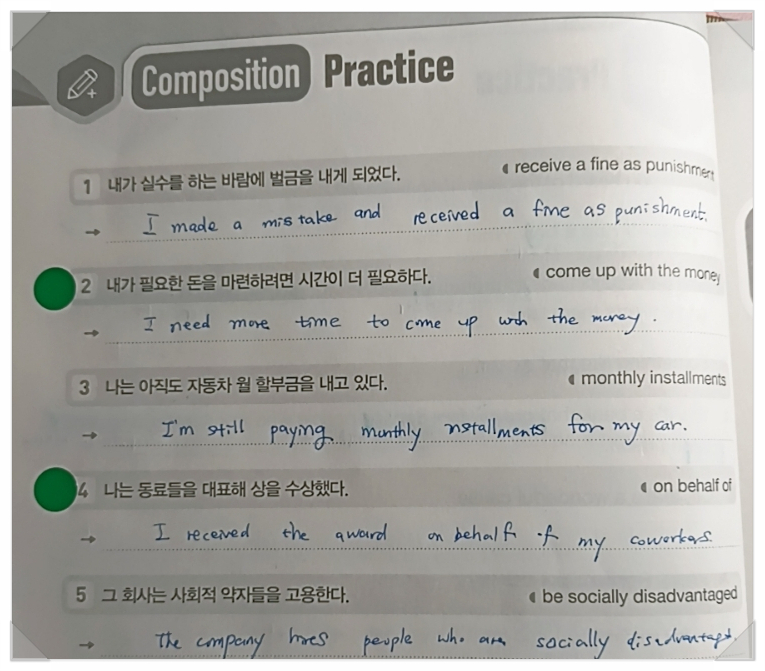 Composition Practice
1 내가 실수를 하는 바람에 벌금을 내게 되었다. receive a fine as punishment
→ I made a mistake and received a fine as punishment.
2 내가 필요한 돈을 마련하려면 시간이 더 필요하다. come up with the money
→ I need more time to come up with the money.
3 나는 아직도 자동차 월 할부금을 내고 있다. monthly installments
→ I'm still paying monthly installments for my car.
4 나는 동료들을 대표해 상을 수상했다. on behalf of
→ I received the award on behalf of my coworkers.
5 그 회사는 사회적 약자들을 고용한다. be socially disadvantaged
→ The company hires people who are socially disadvantaged.